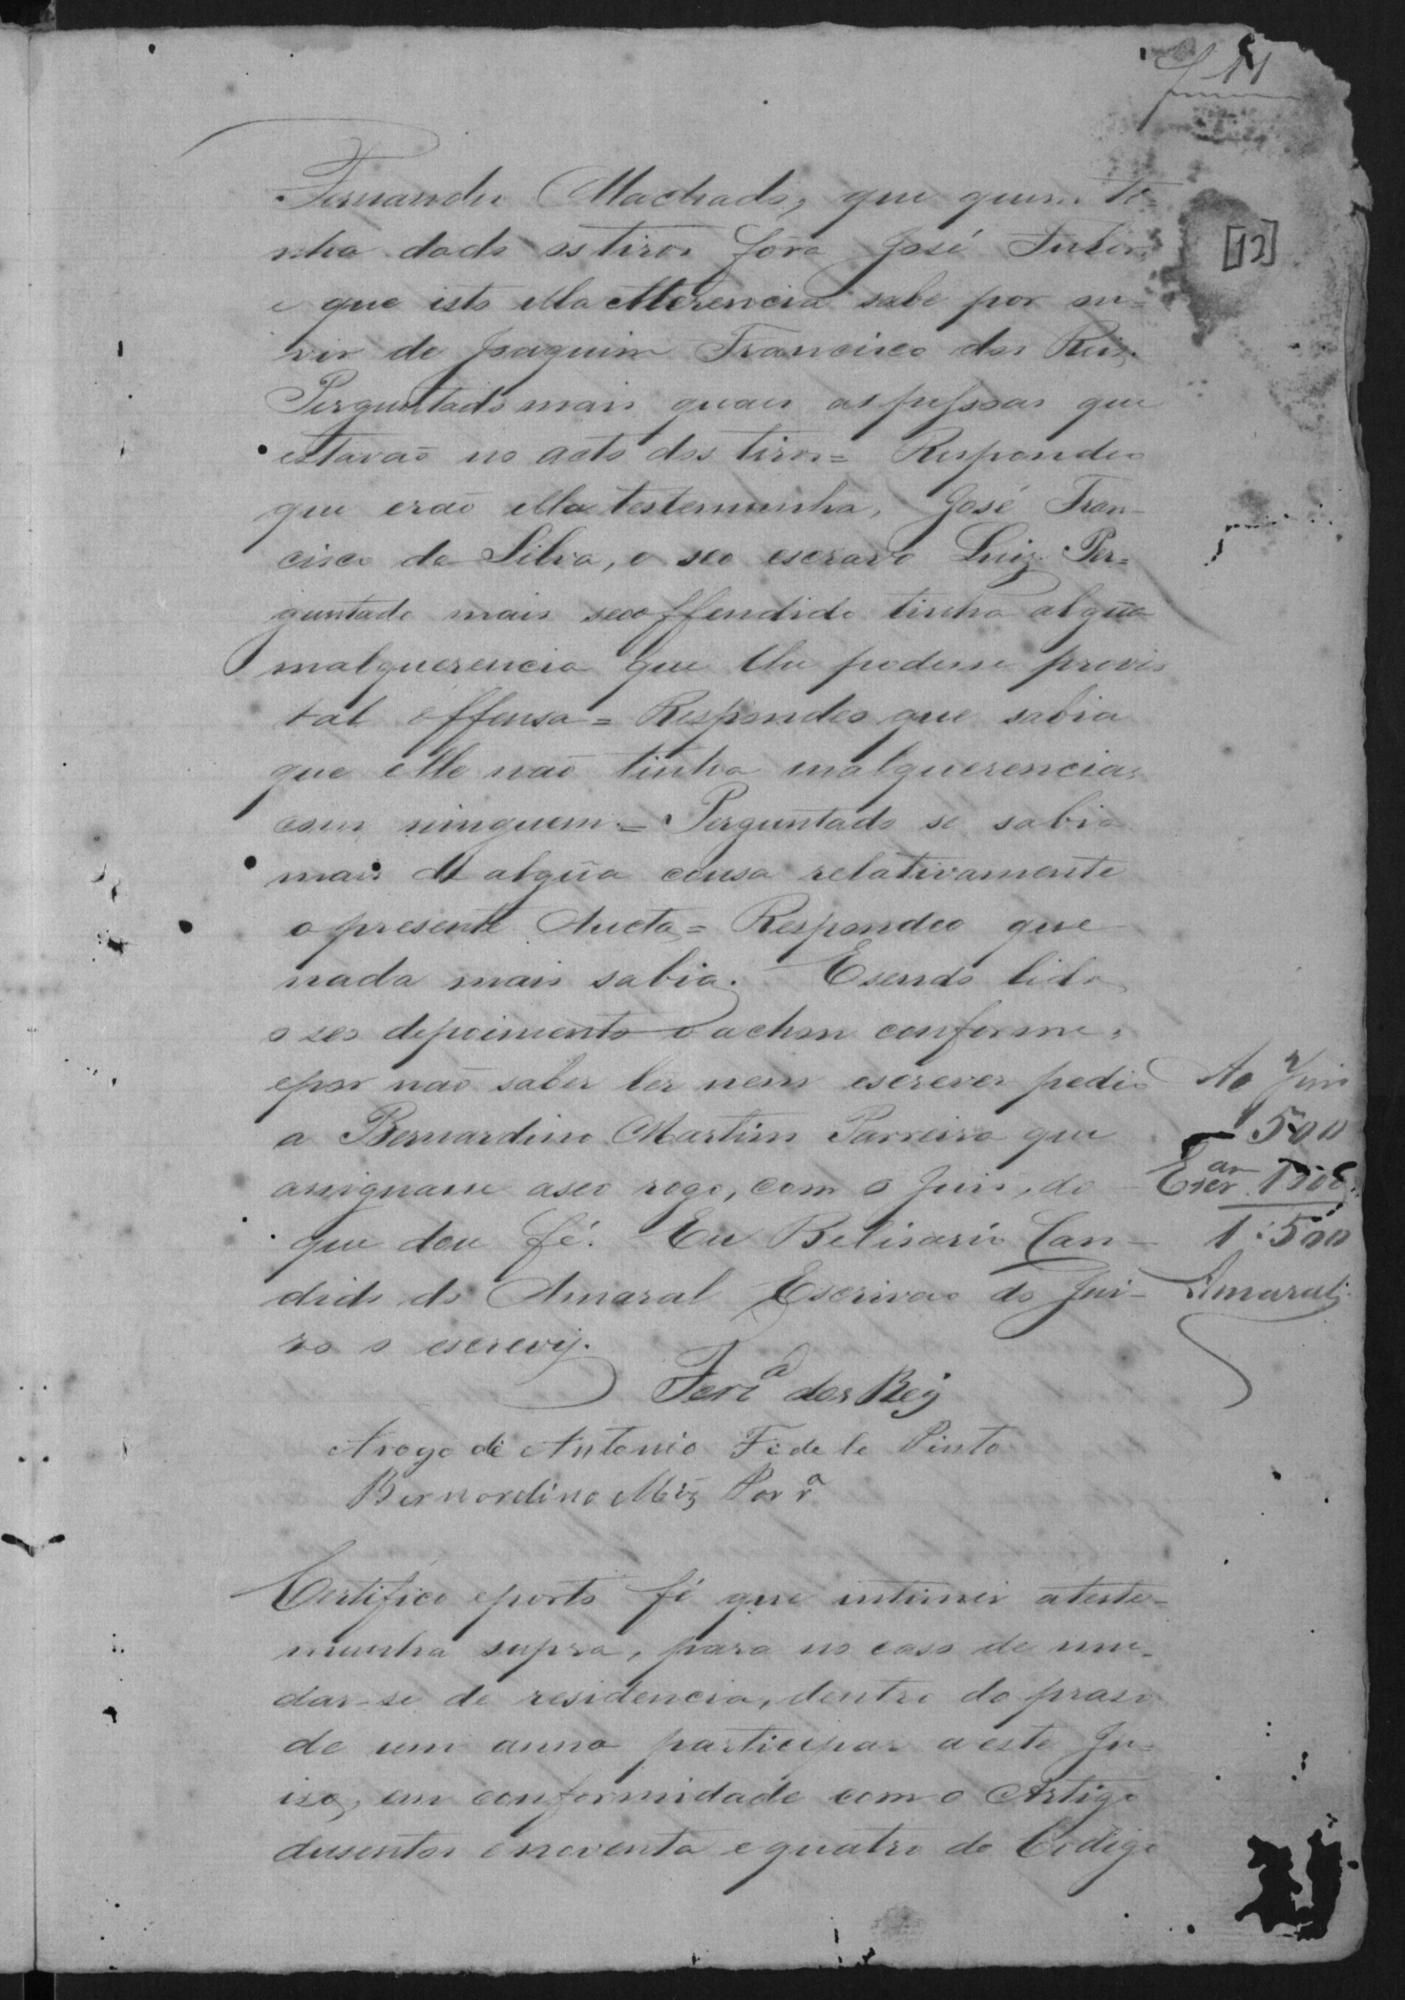 11
[12]
Fernandes Machado, que quem te-
nha dado os tiros fôra José
e que isto ella sabe por ou-
vir de Joaquim Francisco dos Reis.
Perguntado mais quaes as pessoas que
estavaõ no acto dos tiros = Respondeo
que eraõ ella testemunha, José Fran-
cisco da Silva, e seo escravo Luiz. Per=
guntado mais se o offendido tinha algũa
malquerencia que lhe podesse provir
tal offensa = Respondeo que sabia
que elle naõ tinha malquerencias
com ninguem. = Perguntado se sabia
mais d algũa cousa relativamente
o presente Aucto = Respondeo que
nada mais sabia. E sendo lido
o seo depoimento o achou conforme,
e por naõ saber ler nem escrever pedio
a Bernardino Martins Parreira que
assignasse a seo rogo, com o Juis, do
que dou fé. Eu Belisario Can-
dido do Amaral Escrivaõ do Jui-
zo o escrevy.
Ao Juis
500
Escram 1000
1:500
Amaral
Ferra dos Reis
Arogo de Antonio Fedele Pinto
Bernardino Miz Parra
Certifico e porto fé que intimei a teste-
munha supra, para no caso de mu-
dar-se de residencia, dentro do praso
de um anno participar a este Ju-
iso, em conformidade com o Artigo
dusentos e noventa e quatro do Codigo